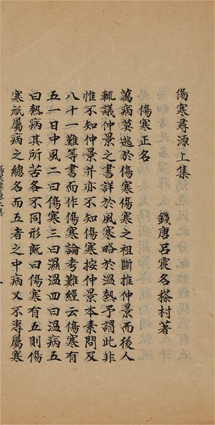 傷寒尋源上集
錢唐呂震名搽村著
傷寒正名
萬病莫逃於傷寒傷寒之祖斷推仲景而後人
輒議仲景之書詳於風寒略於溫熱予謂此非
惟不知仲景并亦不知傷寒按仲景本素問及
八十一難等書而作傷寒論考難經云傷寒有
五一曰中風二曰傷寒三曰濕溫四曰溫病五
曰熱病其所苦各不同形既曰傷寒有五則傷
寒祇屬病之總名而五者之中病又不專屬寒